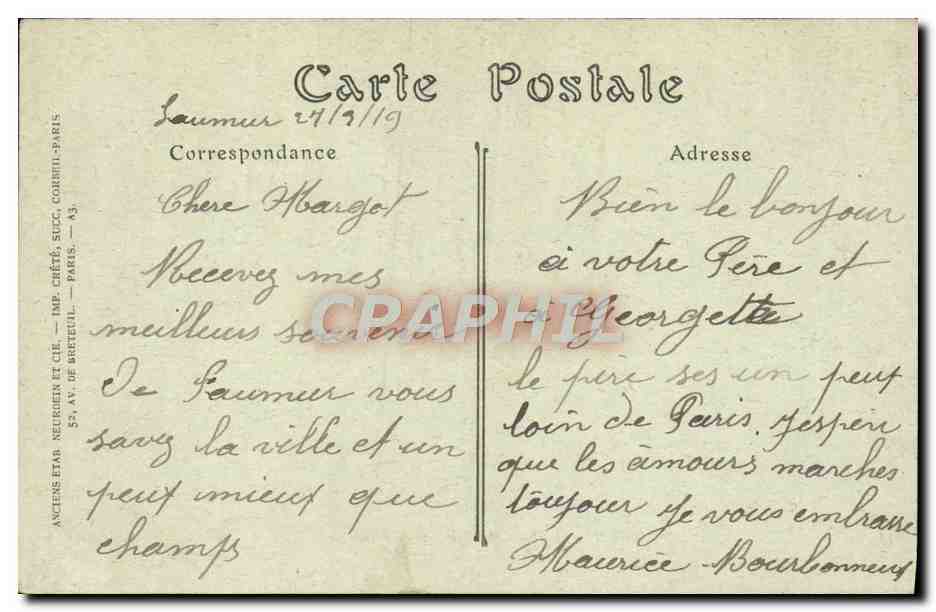 Carte Postale
Saumur 27/9/19
Correspondance
Chere Margot
Recevez mes
meilleurs souvenir
De Saumur vous
savez la ville et un
peut mieux que
champs
Adresse
Bien le bonjour
à votre Père et
a Georgette
le pire ses un peut
loin de Paris. Jesperr
que les amours marches
toujour Je vous embrasse
Maurice Bourbonneux
ANCIENS ETAB. NEURDEIN ET CIE. — IMP. CRÉTÉ, SUCC, CORBEIL-PARIS
52, AV. DE BRETEUIL. — PARIS. — A3.
CRAPHIL